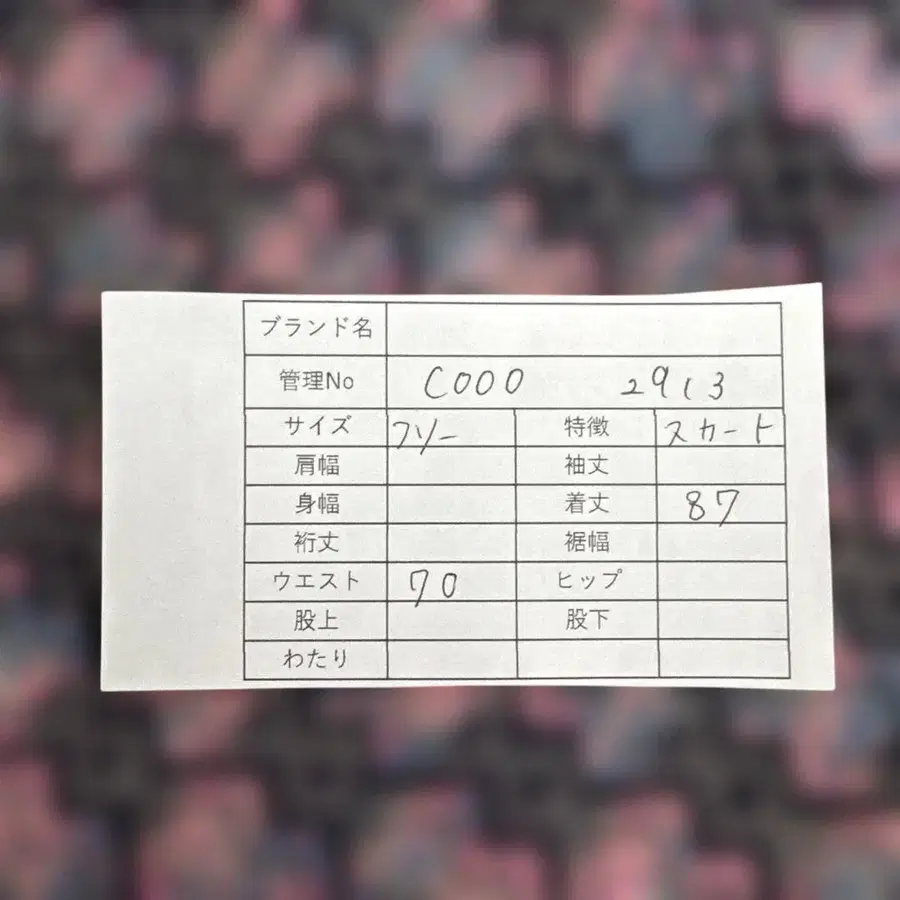 ブランド名
管理No C000 2913
サイズ フリー 特徴 スカート
肩幅 袖丈
身幅 着丈 87
裄丈 裾幅
ウエスト 70 ヒップ
股上 股下
わたり